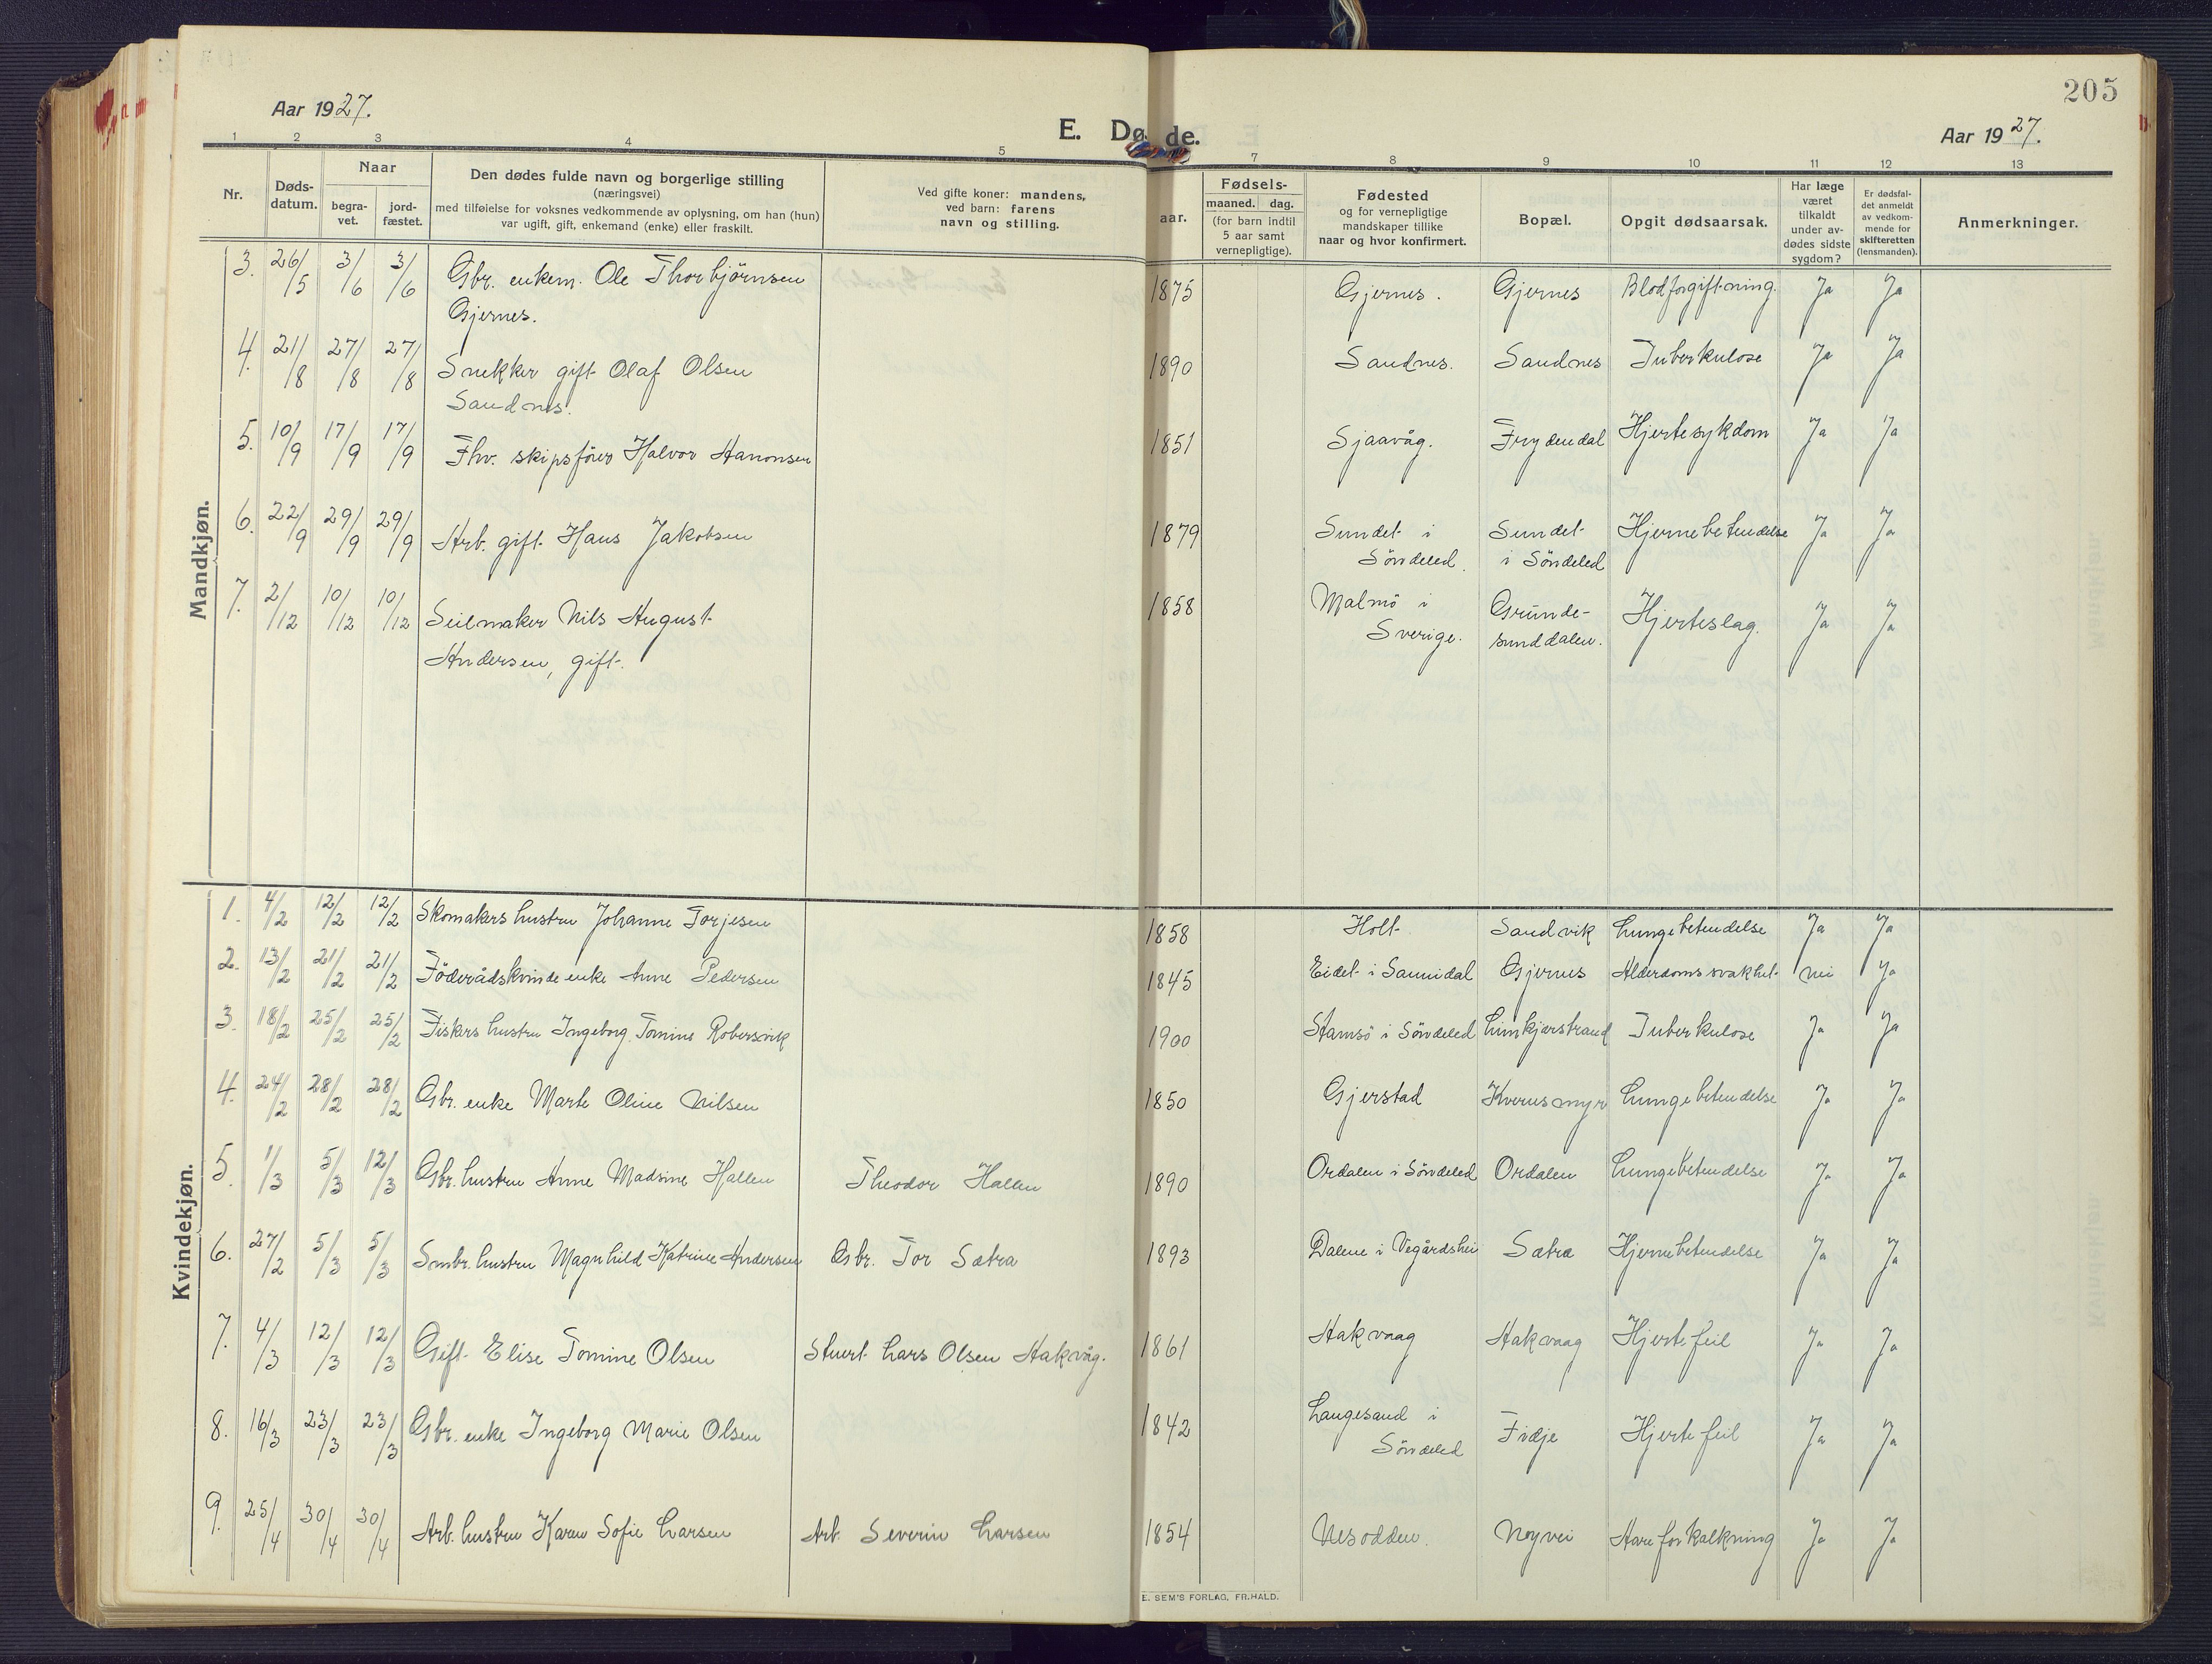 205
Aar 1927.
E. Dø de.
Aar 1927.
1 2 3 4 5 7 8 9 10 11 12 13
Nr.
Døds-
datum.
Naar
begra-
vet.
jord-
fæstet.
Den dødes fulde navn og borgerlige stilling
(næringsvei)
med tilføielse for voksnes vedkommende av oplysning, om han (hun)
var ugift, gift, enkemand (enke) eller fraskilt.
Ved gifte koner: mandens,
ved barn: farens
navn og stilling.
aar.
Fødsels-
maaned. dag.
(for barn indtil
5 aar samt
vernepligtige).
Fødested
og for vernepligtige
mandskaper tillike
naar og hvor konfirmert.
Bopæl.
Opgit dødsaarsak.
Har læge
været
tilkaldt
under av-
dødes sidste
sygdom?
Er dødsfal-
det anmeldt
av vedkom-
mende for
skifteretten
(lensmanden).
Anmerkninger.
Mandkjøn.
3. 26/5 3/6 3/6 Gbr. enkem. Ole Thorbjörnsen 1875 Gjernes. Gjernes Blodforgiftning. Ja Ja
Gjernes.
4. 21/8 27/8 27/8 Snekker gift Olaf Olsen 1890 Sandnes. Sandnes Tuberkulose Ja Ja
Sandnes.
5. 10/9 17/9 17/9 Fhv. skipsförer Halvor Hanonsen 1851 Sjaavåg. Frydendal Hjertesykdom Ja Ja
6. 22/9 29/9 29/9 Arb. gift Hans Jakobsen 1879 Sundet i Sundet Hjernebetendelse Ja Ja
Söndeled. i Söndeled
7. 2/12 10/12 10/12 Seilmaker Nils August 1858 Malmö i Grunde- Hjerteslag. Ja Ja
Andersen, gift. Sverige. sunddalen.
Kvindekjøn.
1. 4/2 12/2 12/2 Skomakers hustru Johanne Torjesen 1858 Holt Sandvik Lungebetendelse Ja Ja
2. 13/2 21/2 21/2 Föderådskvinde enke Anne Pedersen 1845 Eidet i Sannidal Gjernes Alderdomssvakhet nei Ja
3. 18/2 25/2 25/2 Fiskers hustru Ingeborg Tomine Robersvik 1900 Stamsö i Söndeled Limkjærstrand Tuberkulose Ja Ja
4. 24/2 28/2 28/2 Gbr. enke Marte Oline Nilsen 1850 Gjerstad Kvernsmyr Lungebetendelse Ja Ja
5. 1/3 5/3 12/3 Gbr. hustru Anne Madsine Hallen Theodor Hallen 1890 Ordalen i Söndeled Ordalen Lungebetendelse Ja Ja
6. 27/2 5/3 5/3 Smbr. hustru Magnhild Katrine Andersen Gbr. Tor Sætra 1893 Dalene i Vegårdshei Sætra Hjernebetendelse Ja Ja
7. 4/3 12/3 12/3 Gift Elise Tomine Olsen Stuert Lars Olsen Hakvåg. 1861 Hakvaag Hakvaag Hjertefeil Ja Ja
8. 16/3 23/3 23/3 Gbr. enke Ingeborg Marie Olsen 1842 Langesand i Fidje Hjertefeil Ja Ja
Söndeled
9. 25/4 30/4 30/4 Arb. hustru Karen Sofie Larsen Arb. Severin Larsen 1854 Nesodden. Nyvei Åreforkalkning Ja Ja
E. SEM'S FORLAG, FR.HALD.